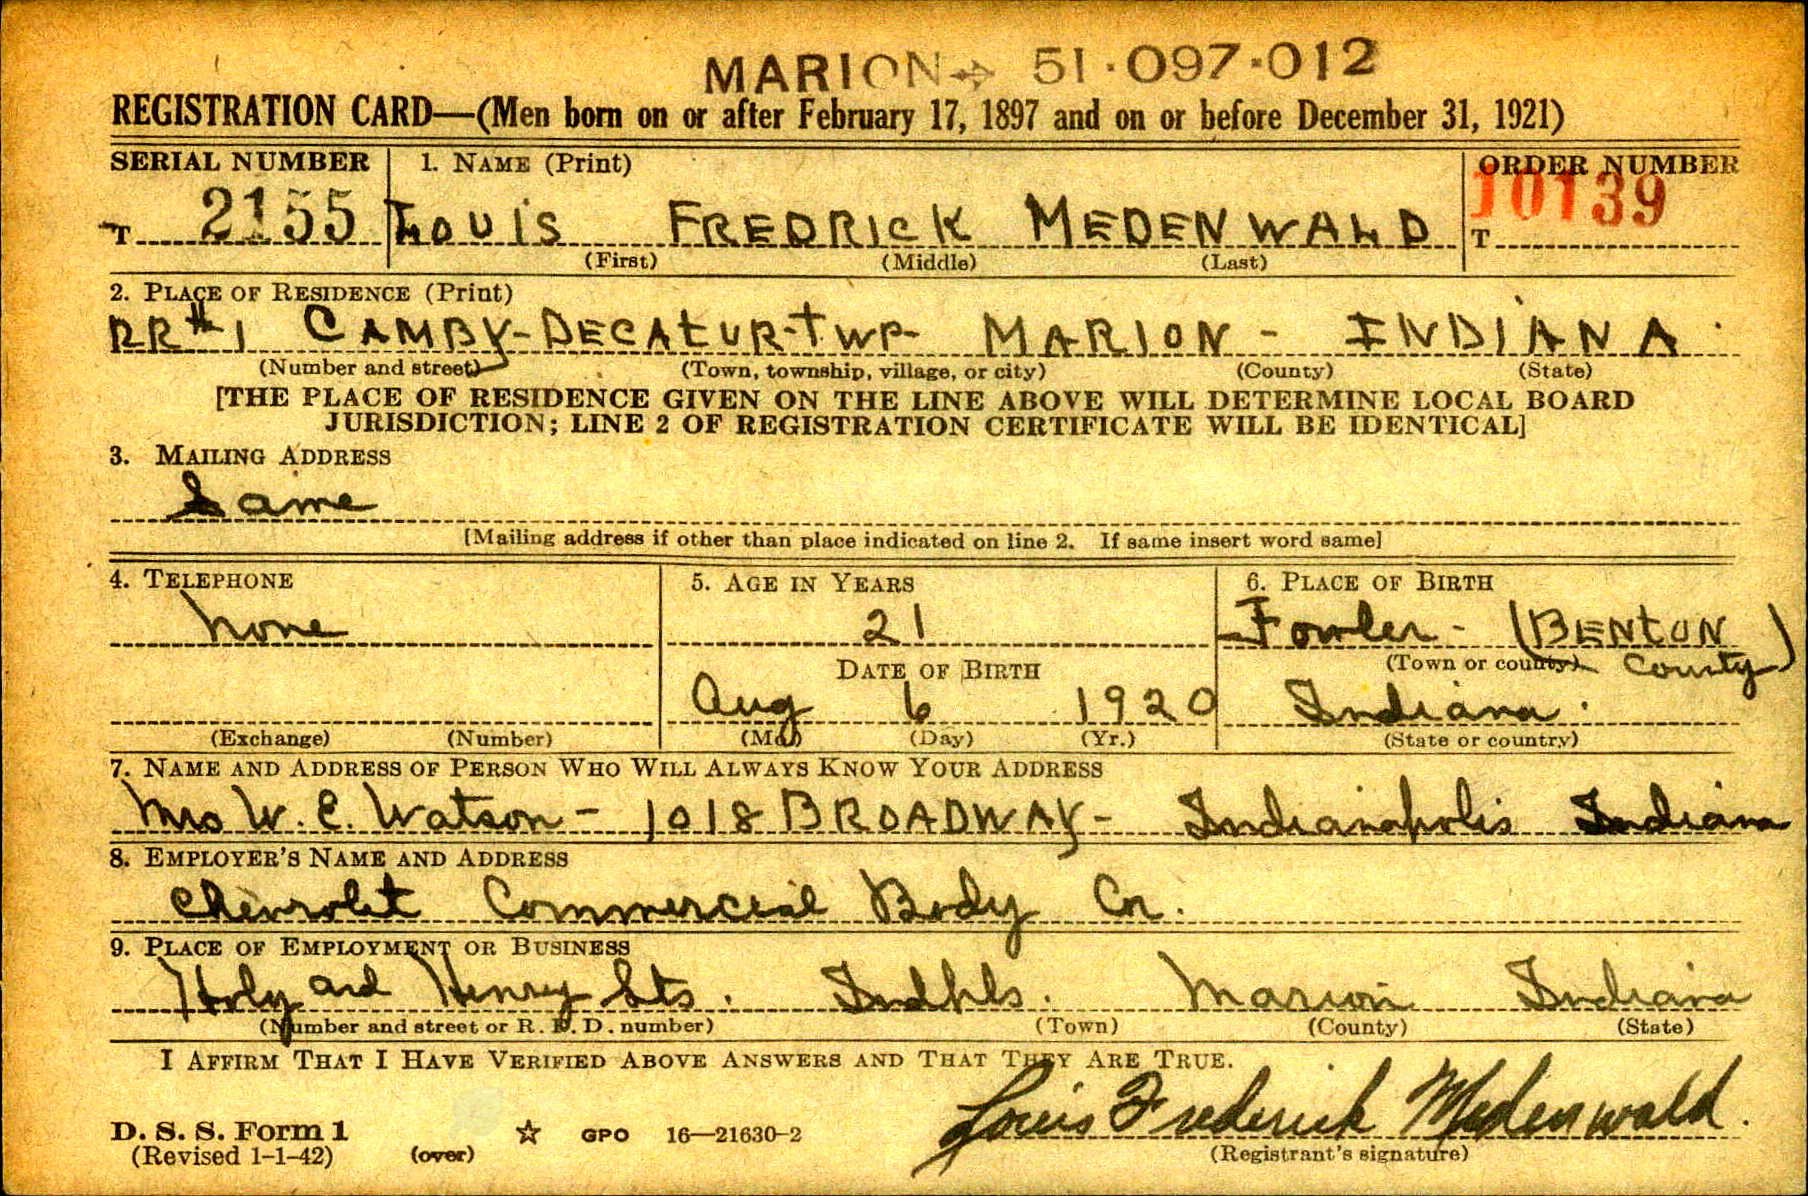 MARION 51·097·012
REGISTRATION CARD—(Men born on or after February 17, 1897 and on or before December 31, 1921)
SERIAL NUMBER 1. NAME (Print) ORDER NUMBER
T 2155 LOUIS FREDRICK MEDENWALD T 10139
(First) (Middle) (Last)
2. PLACE OF RESIDENCE (Print)
RR#1 CAMBY-DECATUR-TWP- MARION - INDIANA
(Number and street) (Town, township, village, or city) (County) (State)
[THE PLACE OF RESIDENCE GIVEN ON THE LINE ABOVE WILL DETERMINE LOCAL BOARD
JURISDICTION; LINE 2 OF REGISTRATION CERTIFICATE WILL BE IDENTICAL]
3. MAILING ADDRESS
Same
[Mailing address if other than place indicated on line 2. If same insert word same]
4. TELEPHONE 5. AGE IN YEARS 6. PLACE OF BIRTH
None 21 Fowler - (BENTON
DATE OF BIRTH (Town or county) County)
Aug 6 1920 Indiana.
(Exchange) (Number) (Mo.) (Day) (Yr.) (State or country)
7. NAME AND ADDRESS OF PERSON WHO WILL ALWAYS KNOW YOUR ADDRESS
Mrs W. E. Watson - 1018 BROADWAY- Indianapolis Indiana
8. EMPLOYER'S NAME AND ADDRESS
Chevrolet Commercial Body Co.
9. PLACE OF EMPLOYMENT OR BUSINESS
and Henry Sts. Indpls. Marion Indiana
(Number and street or R. F. D. number) (Town) (County) (State)
I AFFIRM THAT I HAVE VERIFIED ABOVE ANSWERS AND THAT THEY ARE TRUE.
Louis Frederick Medenwald.
D. S. S. Form 1 GPO 16—21630-2
(Revised 1-1-42) (over) (Registrant's signature)